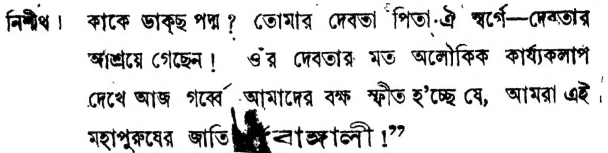 নিশীথ। কাকে ডাকছ পদ্ম? তোমার দেবতা পিতা ঐ স্বর্গে—দেবতার
আশ্রয়ে গেছেন! ওঁর দেবতার মত অলৌকিক কার্য্যকলাপ
দেখে আজ গর্ব্বে আমাদের বক্ষ স্ফীত হ'চ্ছে যে, আমরা এই
মহাপুরুষের জাতি বাঙ্গালী!”